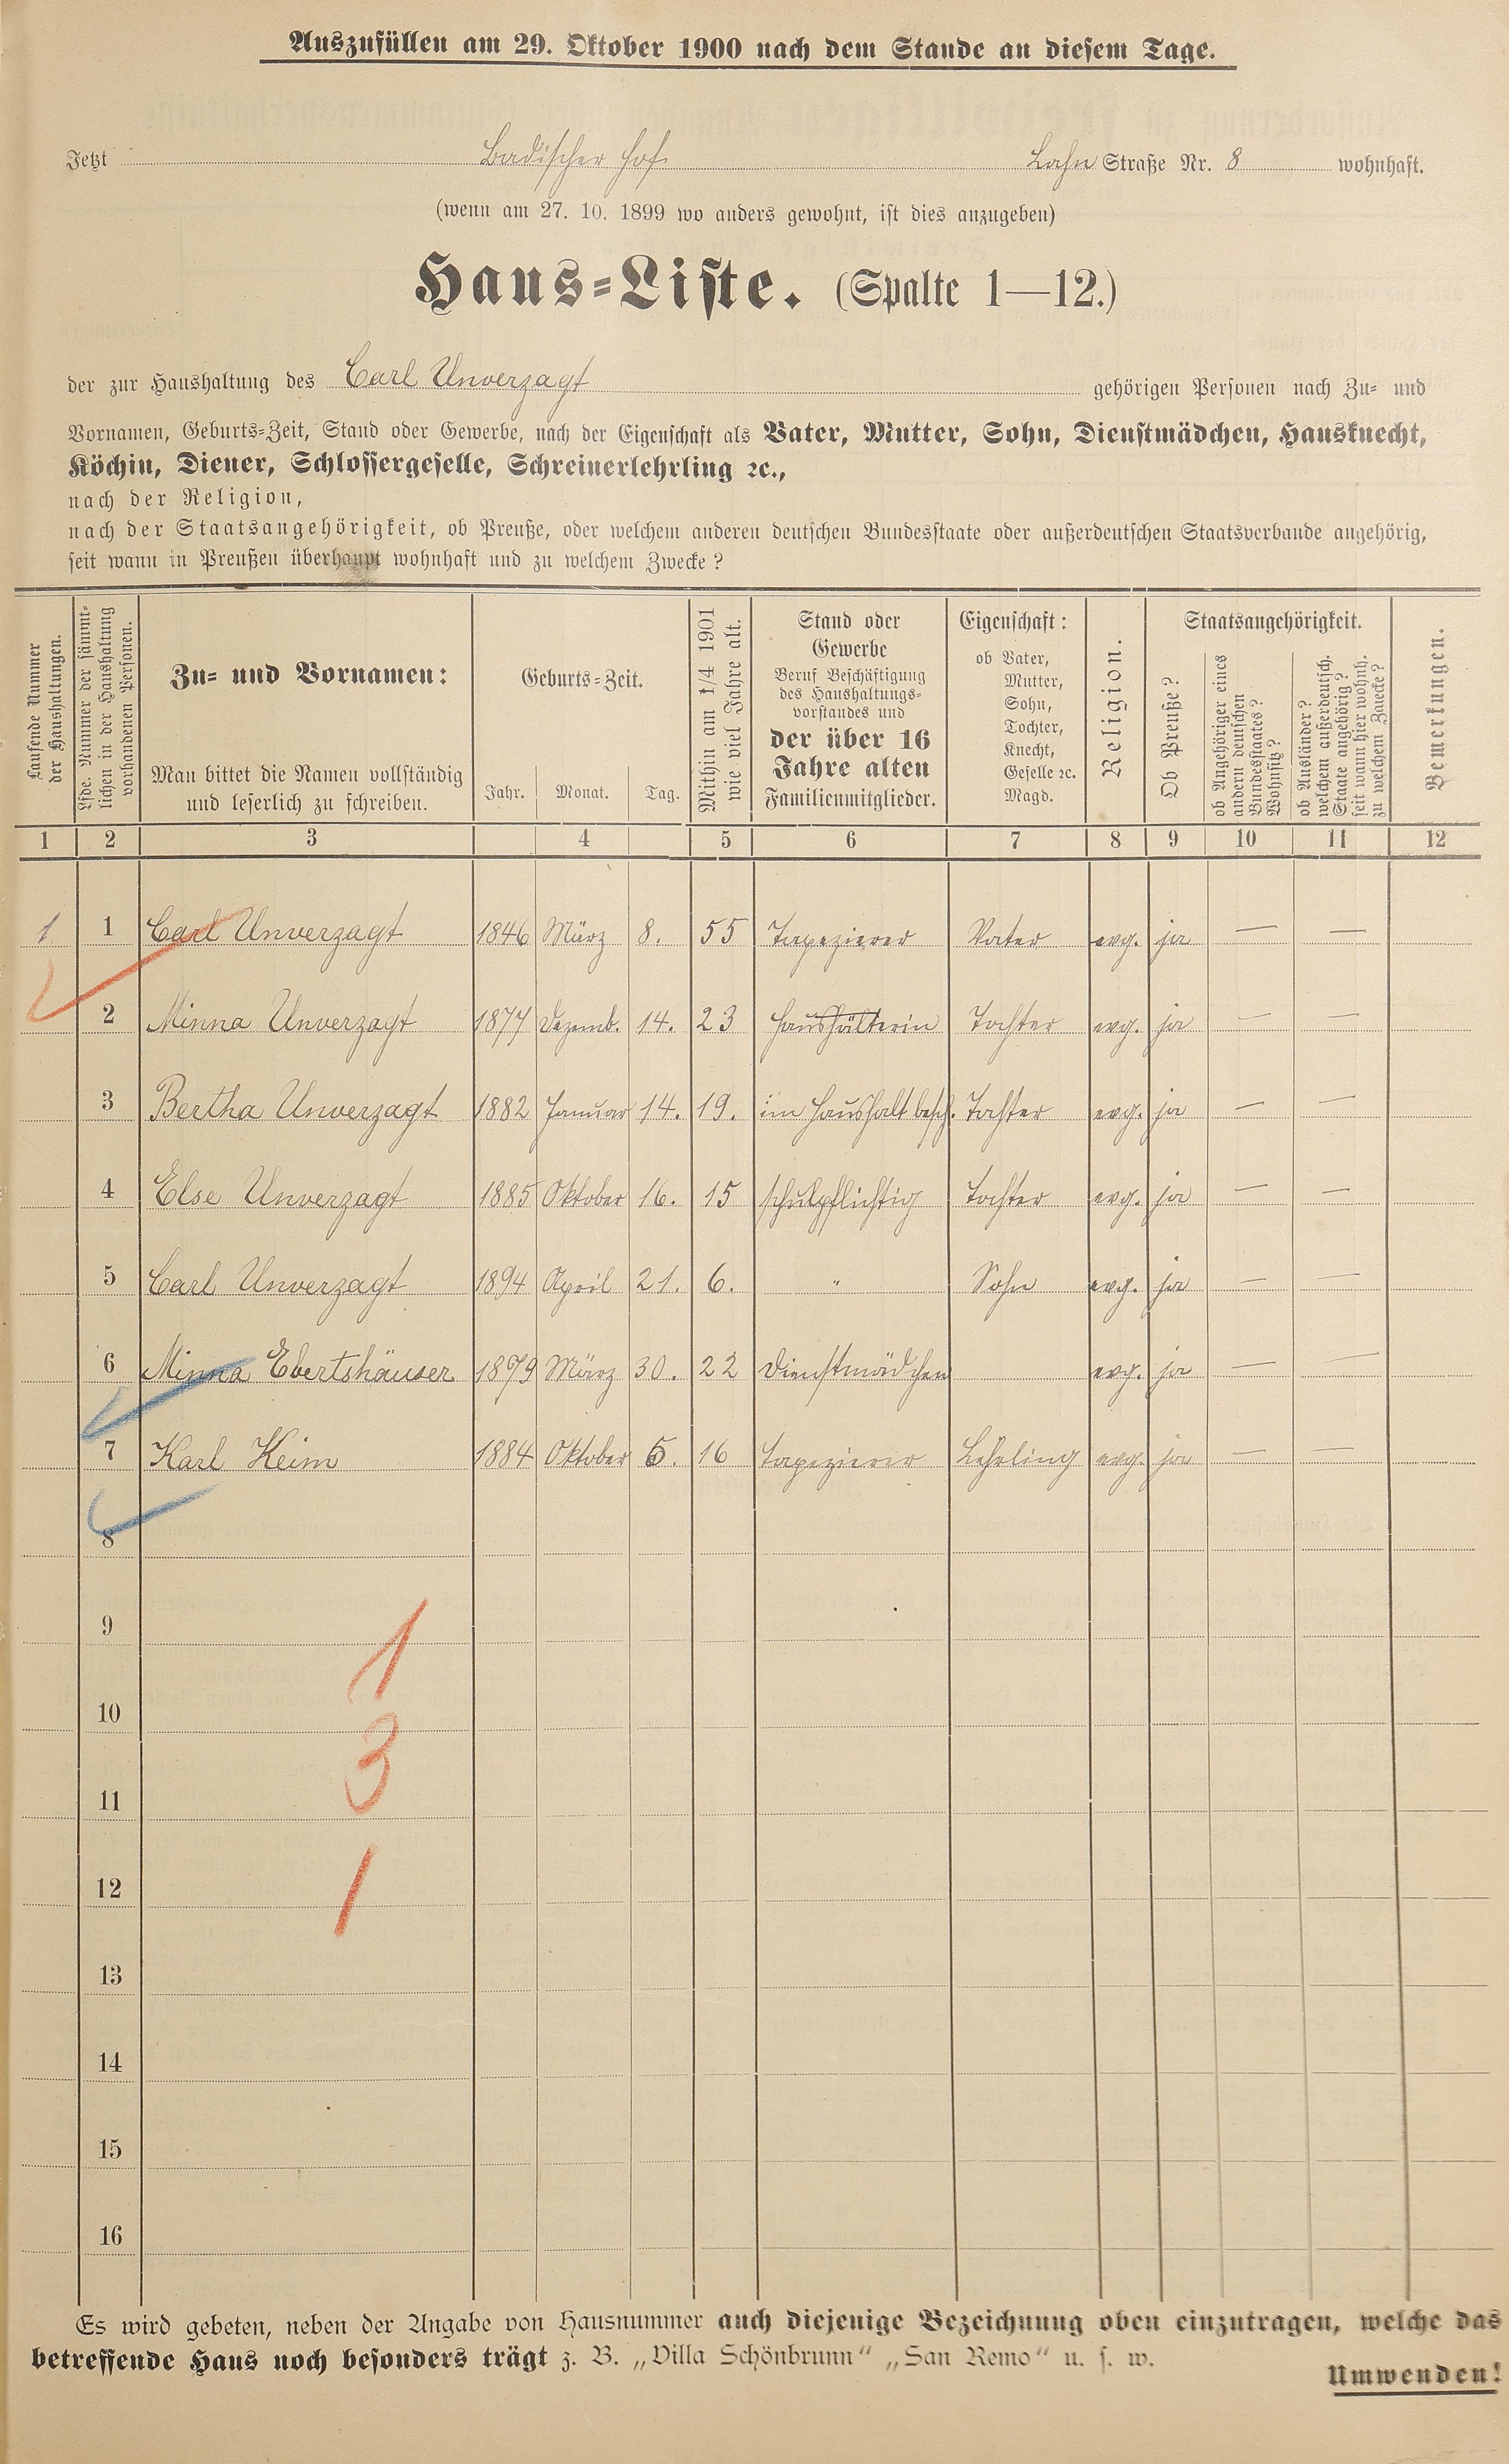 Auszufüllen am 29. Oktober 1900 nach dem Stande an diesem Tage.
Jetzt Badischer Hof. Lahn Straße Nr. 8 wohnhaft.
(wenn am 27. 10. 1899 wo anders gewohnt, ist dies anzugeben)
Haus-Liste. (Spalte 1—12.)
der zur Haushaltung des Carl Unverzagt gehörigen Personen nach Zu- und
Vornamen, Geburts-Zeit, Stand oder Gewerbe, nach der Eigenschaft als Vater, Mutter, Sohn, Dienstmädchen, Hausknecht,
Köchin, Diener, Schlossergeselle, Schreinerlehrling ꝛc.,
nach der Religion,
nach der Staatsangehörigkeit, ob Preuße, oder welchem anderen deutschen Bundesstaate oder außerdeutschen Staatsverbande angehörig,
seit wann in Preußen überhaupt wohnhaft und zu welchem Zwecke?
Laufende Nummer
der Haushaltungen.
Lfde. Nummer der sämmt-
lichen in der Haushaltung
vorhandenen Personen.
Zu- und Vornamen:
Man bittet die Namen vollständig
und leserlich zu schreiben.
Geburts-Zeit.
Jahr. Monat. Tag.
Mithin am 1/4 1901
wie viel Jahre alt.
Stand oder
Gewerbe
Beruf Beschäftigung
des Haushaltungs-
vorstandes und
der über 16
Jahre alten
Familienmitglieder.
Eigenschaft:
ob Vater,
Mutter,
Sohn,
Tochter,
Knecht,
Geselle ꝛc.
Magd.
Religion.
Staatsangehörigkeit.
Ob Preuße?
ob Angehöriger eines
andern deutschen
Bundesstaates?
Wohnsitz?
ob Ausländer?
welchem außerdeutsch.
Staate angehörig?
seit wann hier wohnh.
zu welchem Zwecke?
Bemerkungen.
1 2 3 4 5 6 7 8 9 10 11 12
1 1 Carl Unverzagt 1846 März 8. 55 Tapezierer Vater evg. ja — —
2 Minna Unverzagt 1877 Dezemb. 14. 23 Haushälterin Tochter evg. ja — —
3 Bertha Unverzagt 1882 Januar 14. 19. im Haushalt besch. Tochter evg. ja — —
4 Else Unverzagt 1885 Oktober 16. 15 schulpflichtig Tochter evg. ja — —
5 Carl Unverzagt 1894 April 21. 6. " Sohn evg. ja — —
6 Minna Ebertshäuser 1879 März 30. 22 Dienstmädchen evg. ja — —
7 Karl Keim 1884 Oktober 5. 16 Tapezierer Lehrling evg. ja — —
8
9
1
10
3
11
12
1
13
14
15
16
Es wird gebeten, neben der Angabe von Hausnummer auch diejenige Bezeichnung oben einzutragen, welche das
betreffende Haus noch besonders trägt z. B. „Villa Schönbrunn“ „San Remo“ u. s. w.
Umwenden!